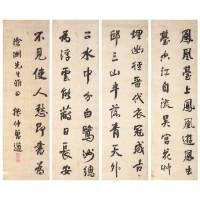 鳳凰臺上鳳凰遊鳳去
臺空江自流吳宮花草
埋幽徑晉代衣冠成古
邱三山半落青天外
二水中分白鷺洲總
為浮雲能蔽日長安
不見使人愁即書為
先生雅